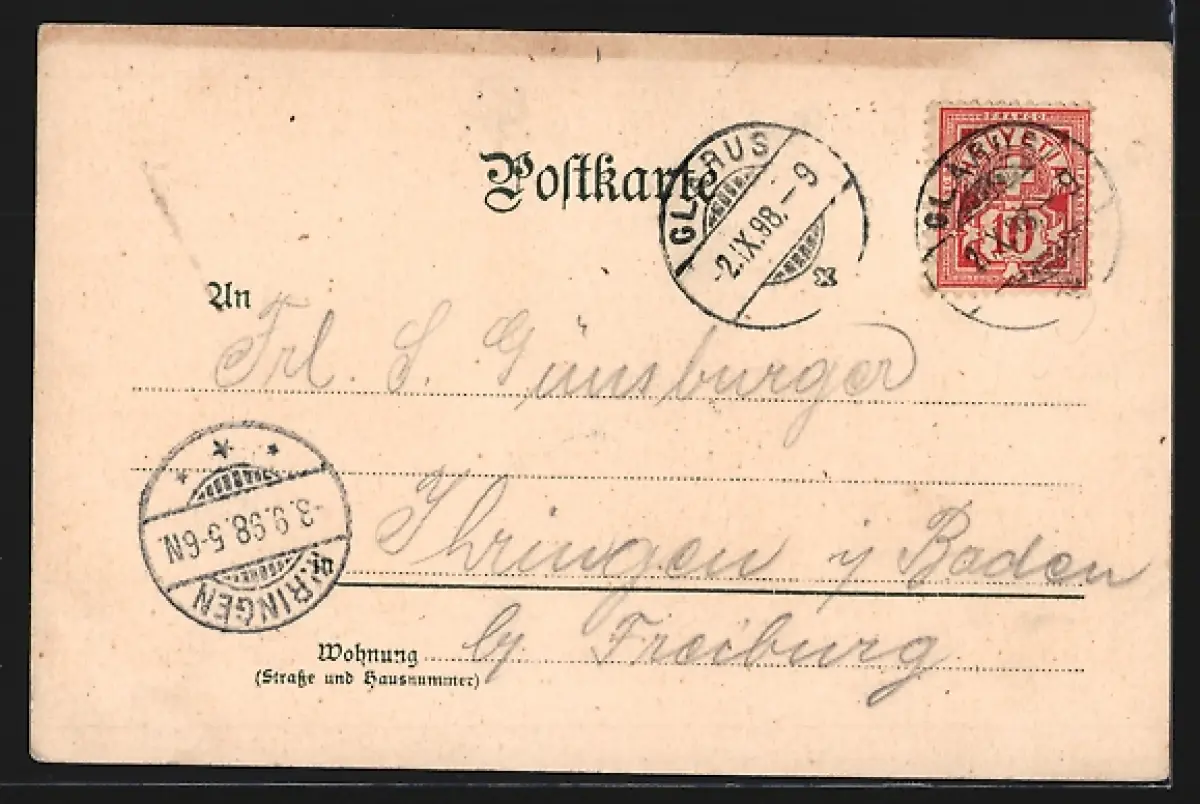 Postkarte
GLARUS
-2.IX.98.-9
FRANCO
10
An
Frl. S. Günsburger
-3.9.98.5-6N.
in
Ihringen i/ Baden
by Freiburg
Wohnung
(Straße und Hausnummer)